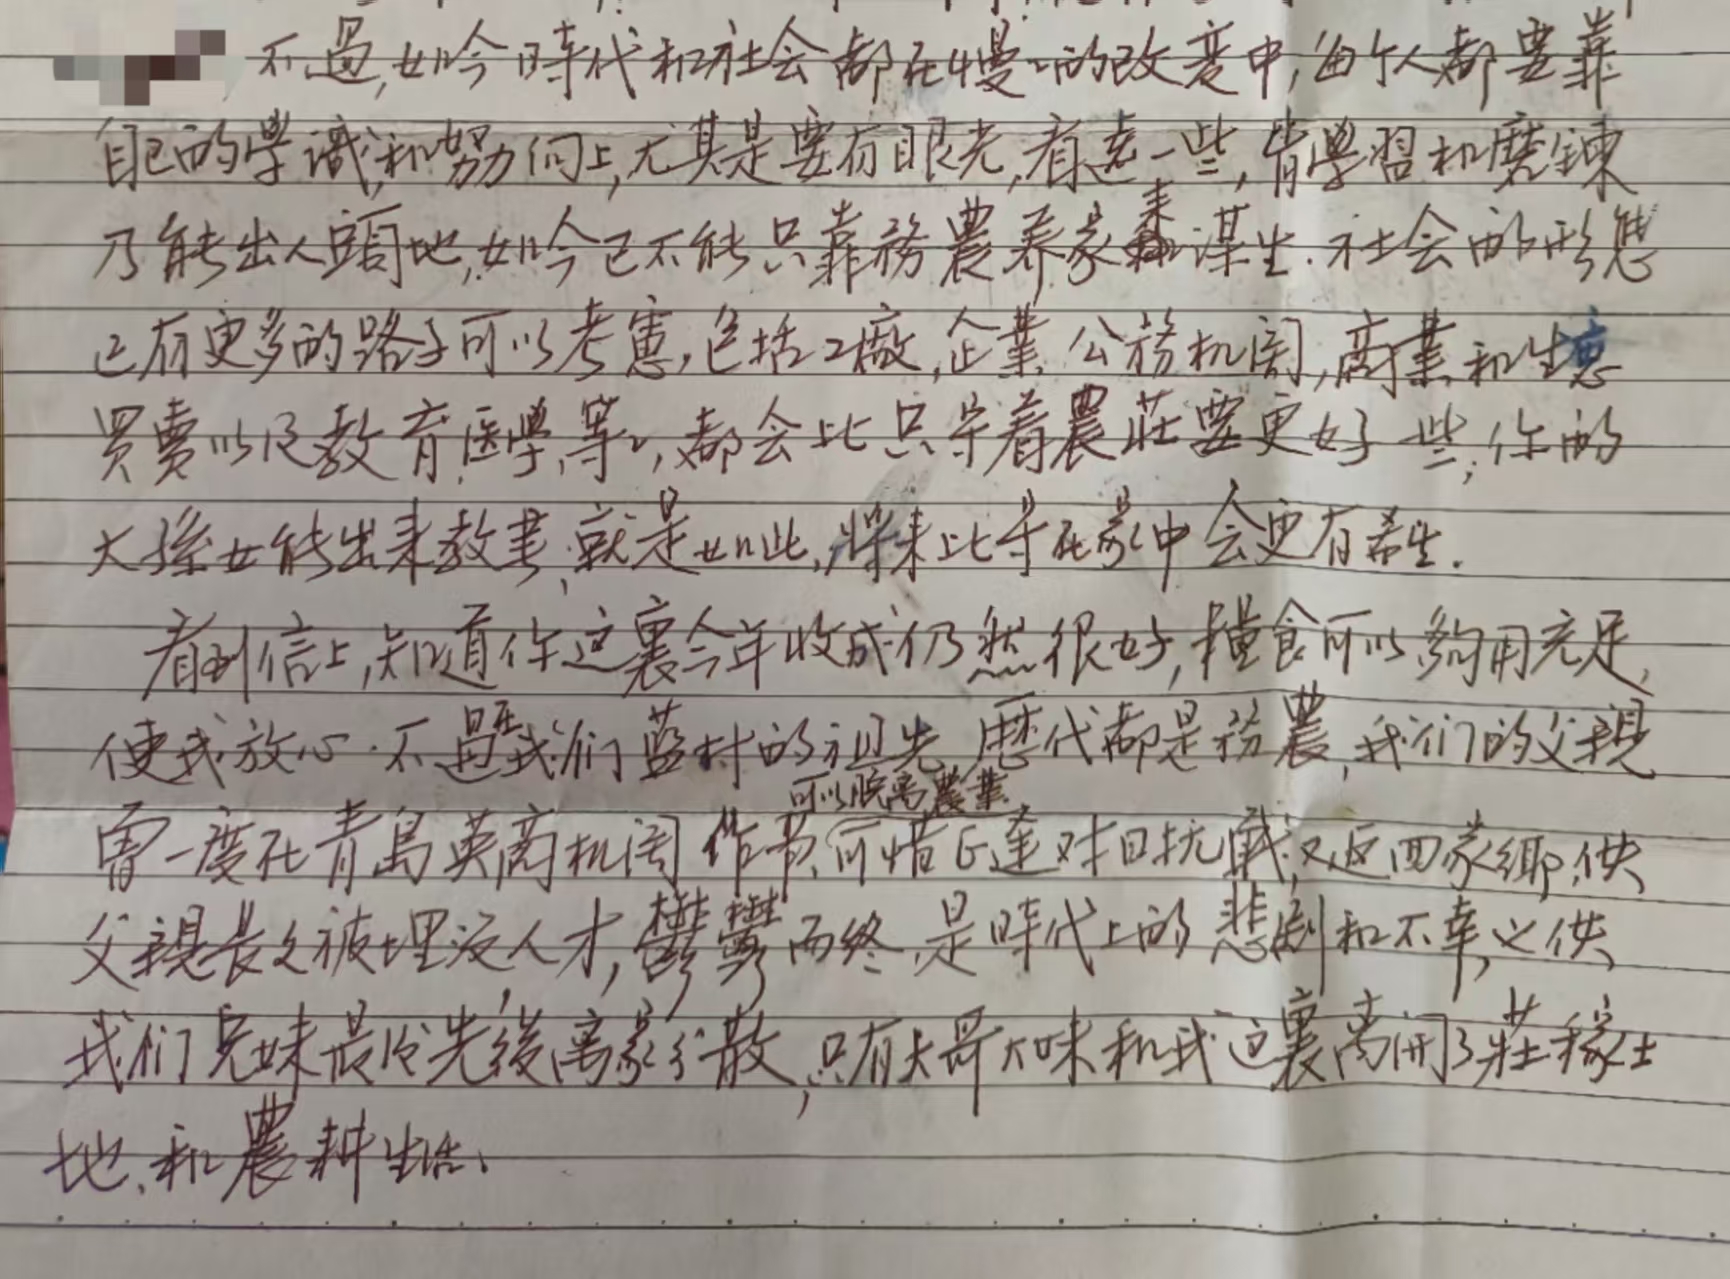 不過,如今時代和社会都在慢々的改变中,每个人都要靠
自己的學識,和努力向上,尤其是要有眼光,看遠一些,肯學習和磨鍊
乃能出人頭地,如今已不能只靠務農养家來謀生.社会的形態
已有更多的路子可以考慮,包括工廠,企業,公務机関,商業,和生意
買賣以及教育,医學,等々,都会比只守着農莊要更好一些,你的
大孫女能出来教書,就是如此,将来比守在家中会更有希望.
看到信上,知道你这裏今年收成仍然很好,糧食可以夠用充足,
使我放心.不過我们藍村的祖先,歷代都是務農,我们的父親
可以脱离農業
曾一度在青島英商机関作事,可惜正逢对日抗戰,又返回家鄉,使
父親長久被埋没人才,鬱鬱而終,是時代上的悲劇和不幸,也使
我们兄妹最后先後离家分散,只有大哥大妹和我这裏离開了莊稼土
地,和農耕生活、